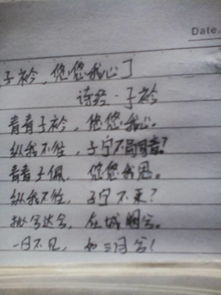 Date.
子衿，悠悠我心]
诗经·子衿
青青子衿，悠悠我心。
纵我不往，子宁不嗣音？
青青子佩，悠悠我思。
纵我不往，子宁不来？
挑兮达兮，在城阙兮。
一日不见，如三月兮！